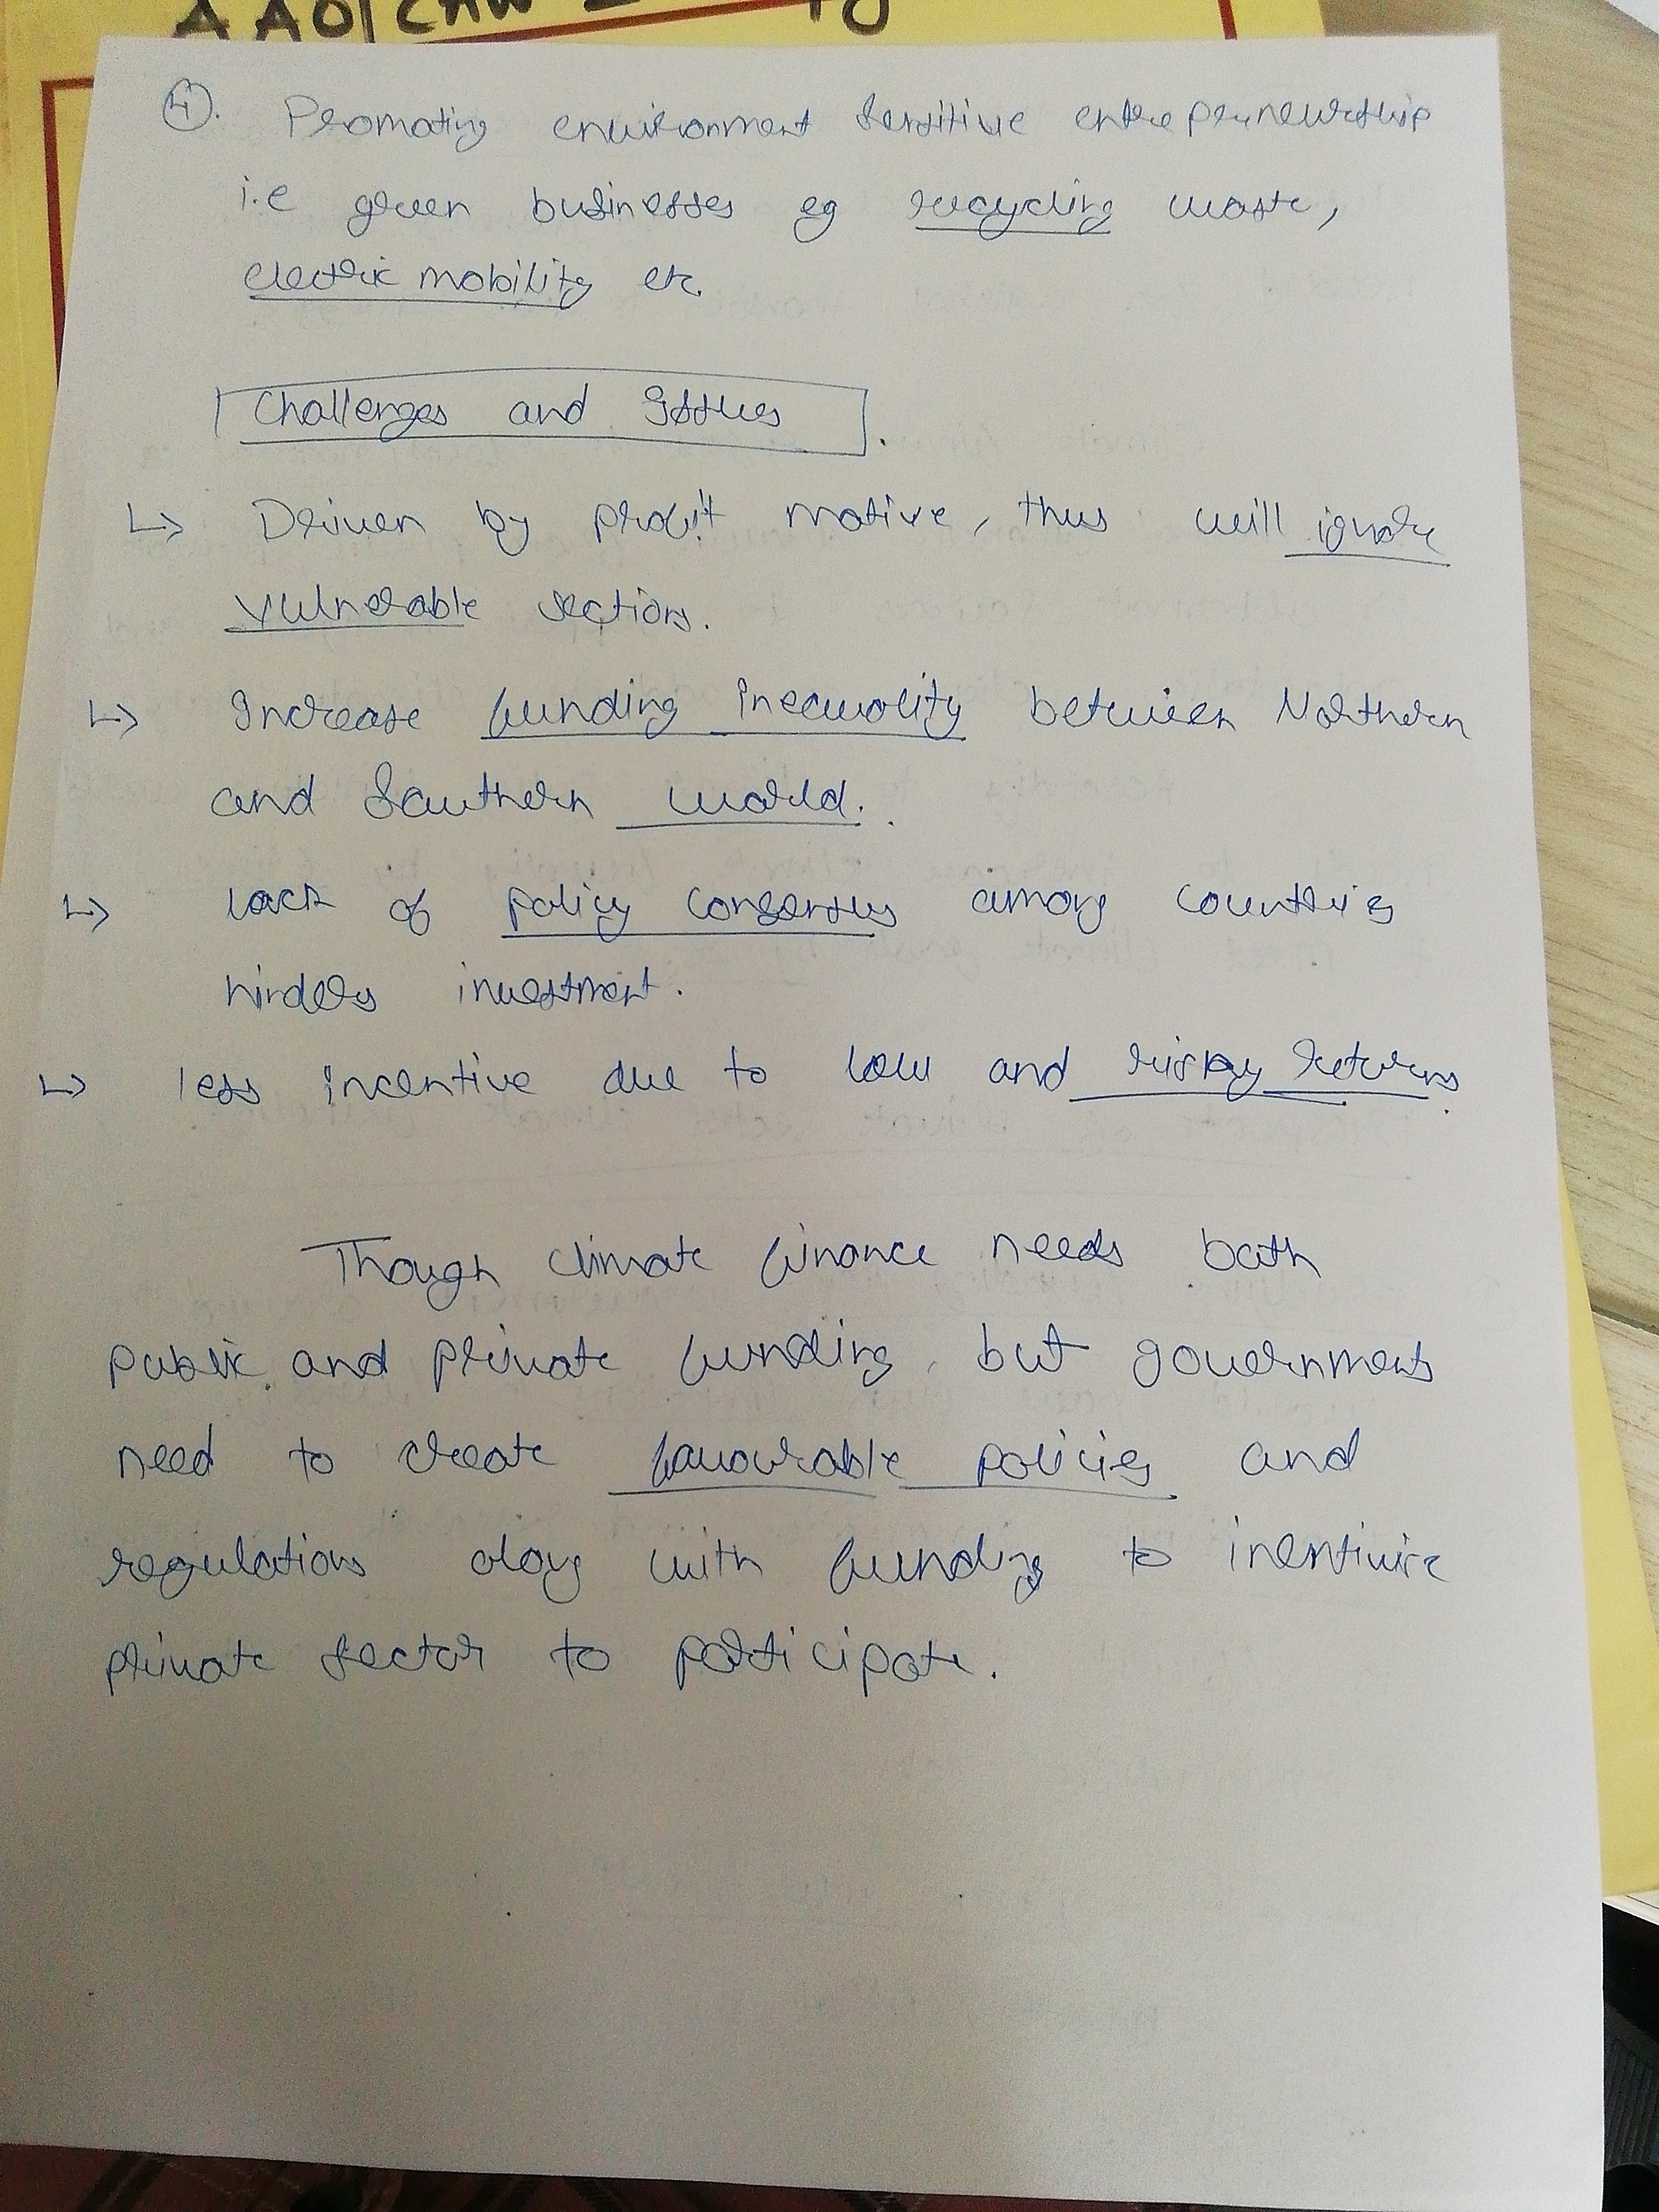 4. Promoting environment sensitive entrepreneurship
i.e green businesses eg recycling waste,
electric mobility etc.
Challenges and Issues.
↳ Driven by profit motive, thus will ignore
vulnerable sections.
↳ Increase funding inequality between Northern
and Southern world.
↳ lack of policy consensus among countries
hinders investment.
↳ less incentive due to low and risky returns.
Though climate finance needs both
public and private funding, but governments
need to create favourable policies and
regulations along with funding to incentivize
private sector to participate.